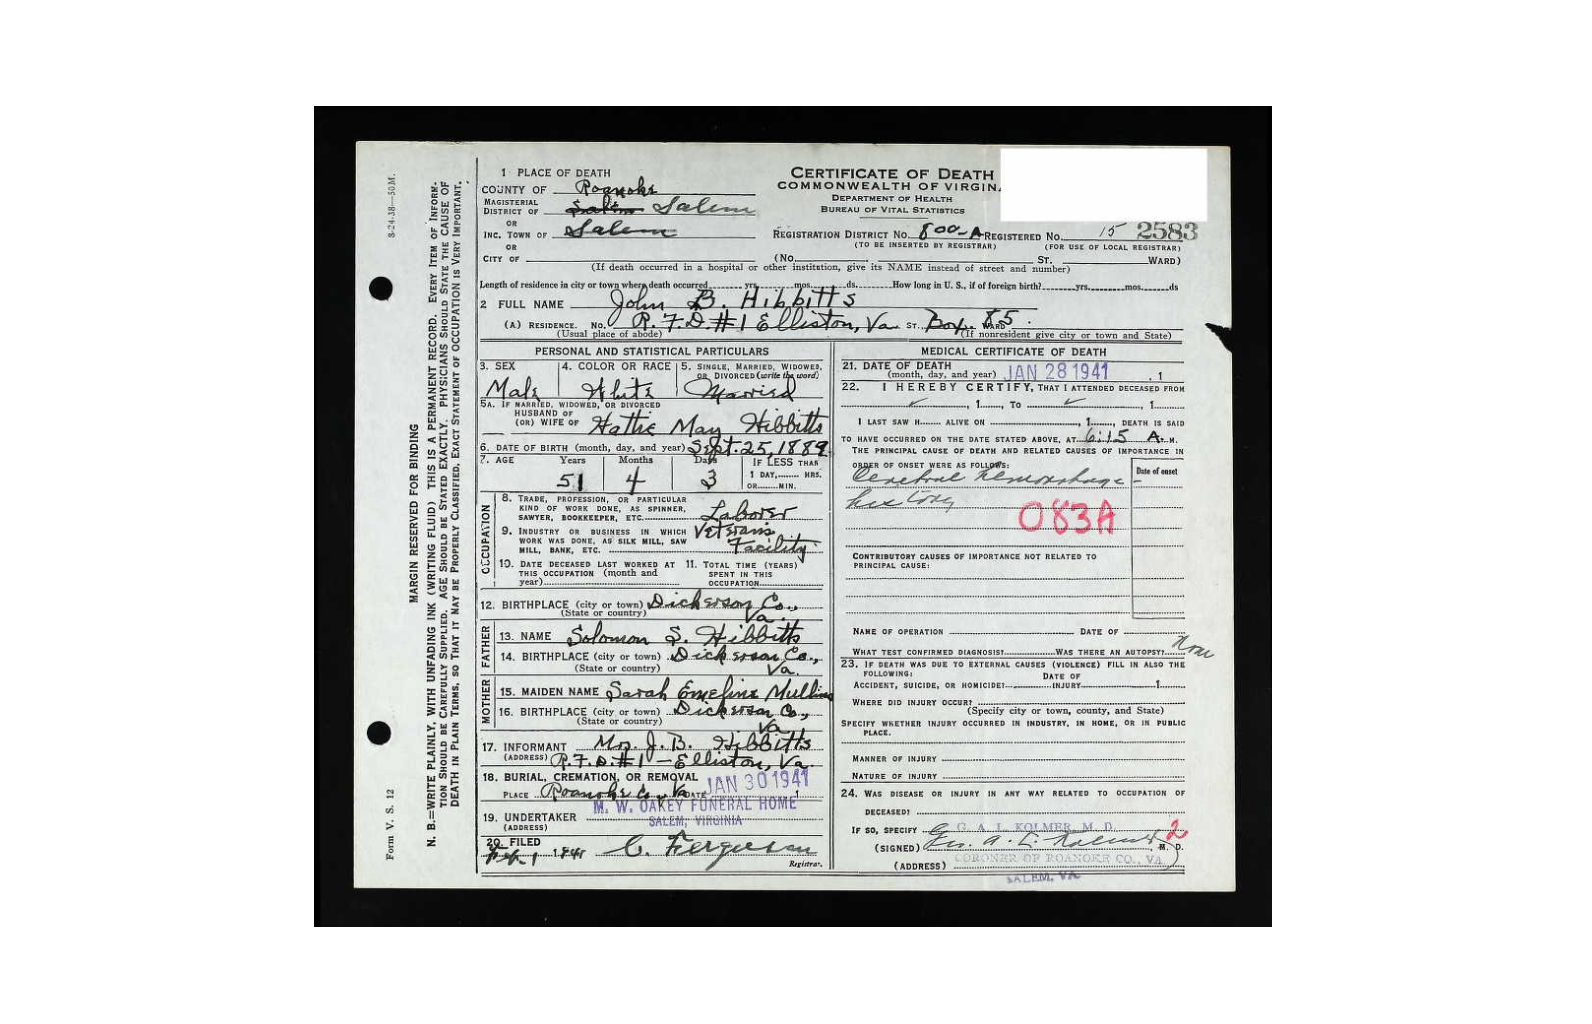 8-24-38—50M.
MARGIN RESERVED FOR BINDING
N. B.=WRITE PLAINLY, WITH UNFADING INK (WRITING FLUID) THIS IS A PERMANENT RECORD. EVERY ITEM OF INFORM-
TION SHOULD BE CAREFULLY SUPPLIED. AGE SHOULD BE STATED EXACTLY. PHYSICIANS SHOULD STATE THE CAUSE OF
DEATH IN PLAIN TERMS, SO THAT IT MAY BE PROPERLY CLASSIFIED. EXACT STATEMENT OF OCCUPATION IS VERY IMPORTANT.
Form V. S. 12
1 PLACE OF DEATH
COUNTY OF Roanoke
MAGISTERIAL DISTRICT OF Salem Salem
OR
INC. TOWN OF Salem
OR
CITY OF
CERTIFICATE OF DEATH
COMMONWEALTH OF VIRGIN
DEPARTMENT OF HEALTH
BUREAU OF VITAL STATISTICS
REGISTRATION DISTRICT NO. 800-A REGISTERED NO. 15 2583
(TO BE INSERTED BY REGISTRAR) (FOR USE OF LOCAL REGISTRAR)
(NO. ST. WARD)
(If death occurred in a hospital or other institution, give its NAME instead of street and number)
Length of residence in city or town where death occurred yrs. mos. ds. How long in U. S., if of foreign birth? yrs. mos. ds
2 FULL NAME John B. Hibbitts
(A) RESIDENCE. NO. R.F.D.#1 Elliston, Va ST. Box 85. WARD
(Usual place of abode) (If nonresident give city or town and State)
PERSONAL AND STATISTICAL PARTICULARS
3. SEX Male
4. COLOR OR RACE White
5. SINGLE, MARRIED, WIDOWED, OR DIVORCED (write the word) Married
5A. IF MARRIED, WIDOWED, OR DIVORCED
HUSBAND OF
(OR) WIFE OF Hattie May Hibbitts
6. DATE OF BIRTH (month, day, and year) Sept. 25, 1889
7. AGE Years 51 Months 4 Days 3
IF LESS THAN
1 DAY, HRS.
OR MIN.
OCCUPATION
8. TRADE, PROFESSION, OR PARTICULAR
KIND OF WORK DONE, AS SPINNER,
SAWYER, BOOKKEEPER, ETC. Laborer
9. INDUSTRY OR BUSINESS IN WHICH
WORK WAS DONE, AS SILK MILL, SAW
MILL, BANK, ETC. Veterans Facility
10. DATE DECEASED LAST WORKED AT
THIS OCCUPATION (month and
year)
11. TOTAL TIME (YEARS)
SPENT IN THIS
OCCUPATION
12. BIRTHPLACE (city or town) Dickerson Co.,
(State or country) Va.
FATHER
13. NAME Solomon S. Hibbitts
14. BIRTHPLACE (city or town) Dickerson Co.,
(State or country) Va.
MOTHER
15. MAIDEN NAME Sarah Emeline Mullins
16. BIRTHPLACE (city or town) Dickerson Co.,
(State or country) Va
17. INFORMANT Mrs. J. B. Hibbitts
(ADDRESS) R.F.D.#1 — Elliston, Va.
18. BURIAL, CREMATION, OR REMOVAL
PLACE Roanoke Co., Va DATE JAN 30 1941
M. W. OAKEY FUNERAL HOME
19. UNDERTAKER
(ADDRESS) SALEM, VIRGINIA
20. FILED
Feb. 1 1941 C. Ferguson
Registrar.
MEDICAL CERTIFICATE OF DEATH
21. DATE OF DEATH
(month, day, and year) JAN 28 1941 , 1
22. I HEREBY CERTIFY, THAT I ATTENDED DECEASED FROM
, 1 , TO , 1
I LAST SAW H ALIVE ON , 1 , DEATH IS SAID
TO HAVE OCCURRED ON THE DATE STATED ABOVE, AT 6:15 A. M.
THE PRINCIPAL CAUSE OF DEATH AND RELATED CAUSES OF IMPORTANCE IN
ORDER OF ONSET WERE AS FOLLOWS: Date of onset
Cerebral hemorrhage -
083A
CONTRIBUTORY CAUSES OF IMPORTANCE NOT RELATED TO
PRINCIPAL CAUSE:
NAME OF OPERATION DATE OF
WHAT TEST CONFIRMED DIAGNOSIS? WAS THERE AN AUTOPSY? None
23. IF DEATH WAS DUE TO EXTERNAL CAUSES (VIOLENCE) FILL IN ALSO THE
FOLLOWING:
ACCIDENT, SUICIDE, OR HOMICIDE? DATE OF INJURY 1
WHERE DID INJURY OCCUR?
(Specify city or town, county, and State)
SPECIFY WHETHER INJURY OCCURRED IN INDUSTRY, IN HOME, OR IN PUBLIC
PLACE.
MANNER OF INJURY
NATURE OF INJURY
24. WAS DISEASE OR INJURY IN ANY WAY RELATED TO OCCUPATION OF
DECEASED?
IF SO, SPECIFY G. A. L. KOLMER, M. D. 2
(SIGNED) Geo. A. L. Kolmer, M. D.
(ADDRESS) CORONER OF ROANOKE CO., VA.
SALEM, VA.